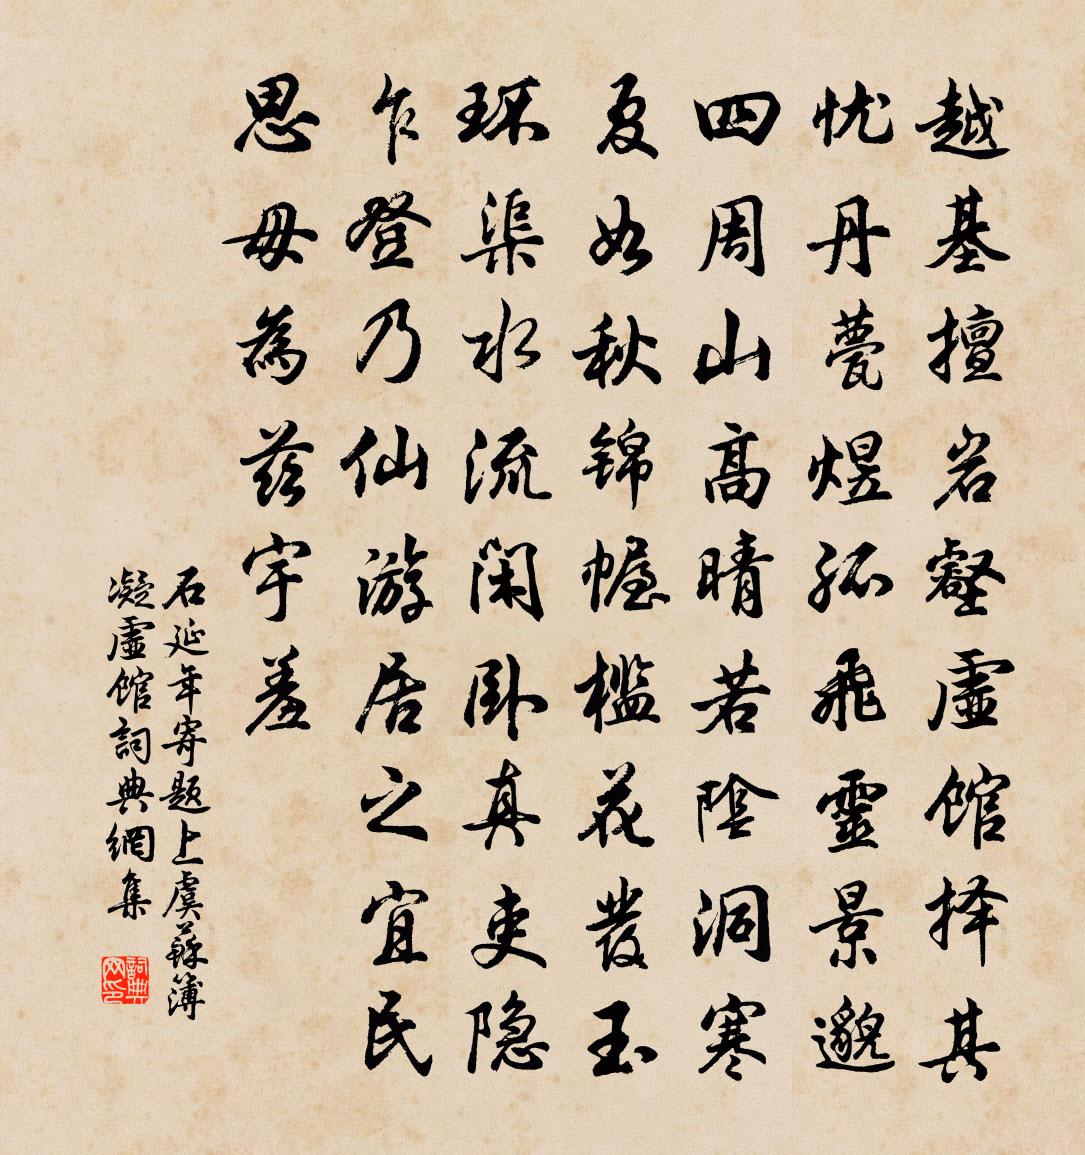 越基擅岩壑虛馆择其
忧丹甍煜孤飛靈景邈
四周山高晴若陰洞寒
夏如秋锦幄槛花發玉
环渠水流閑卧真吏隐
乍登乃仙游居之宜民
思毋為兹宇羞
石延年寄题上虞蘇簿
凝虛馆詞典網集
詞典网印